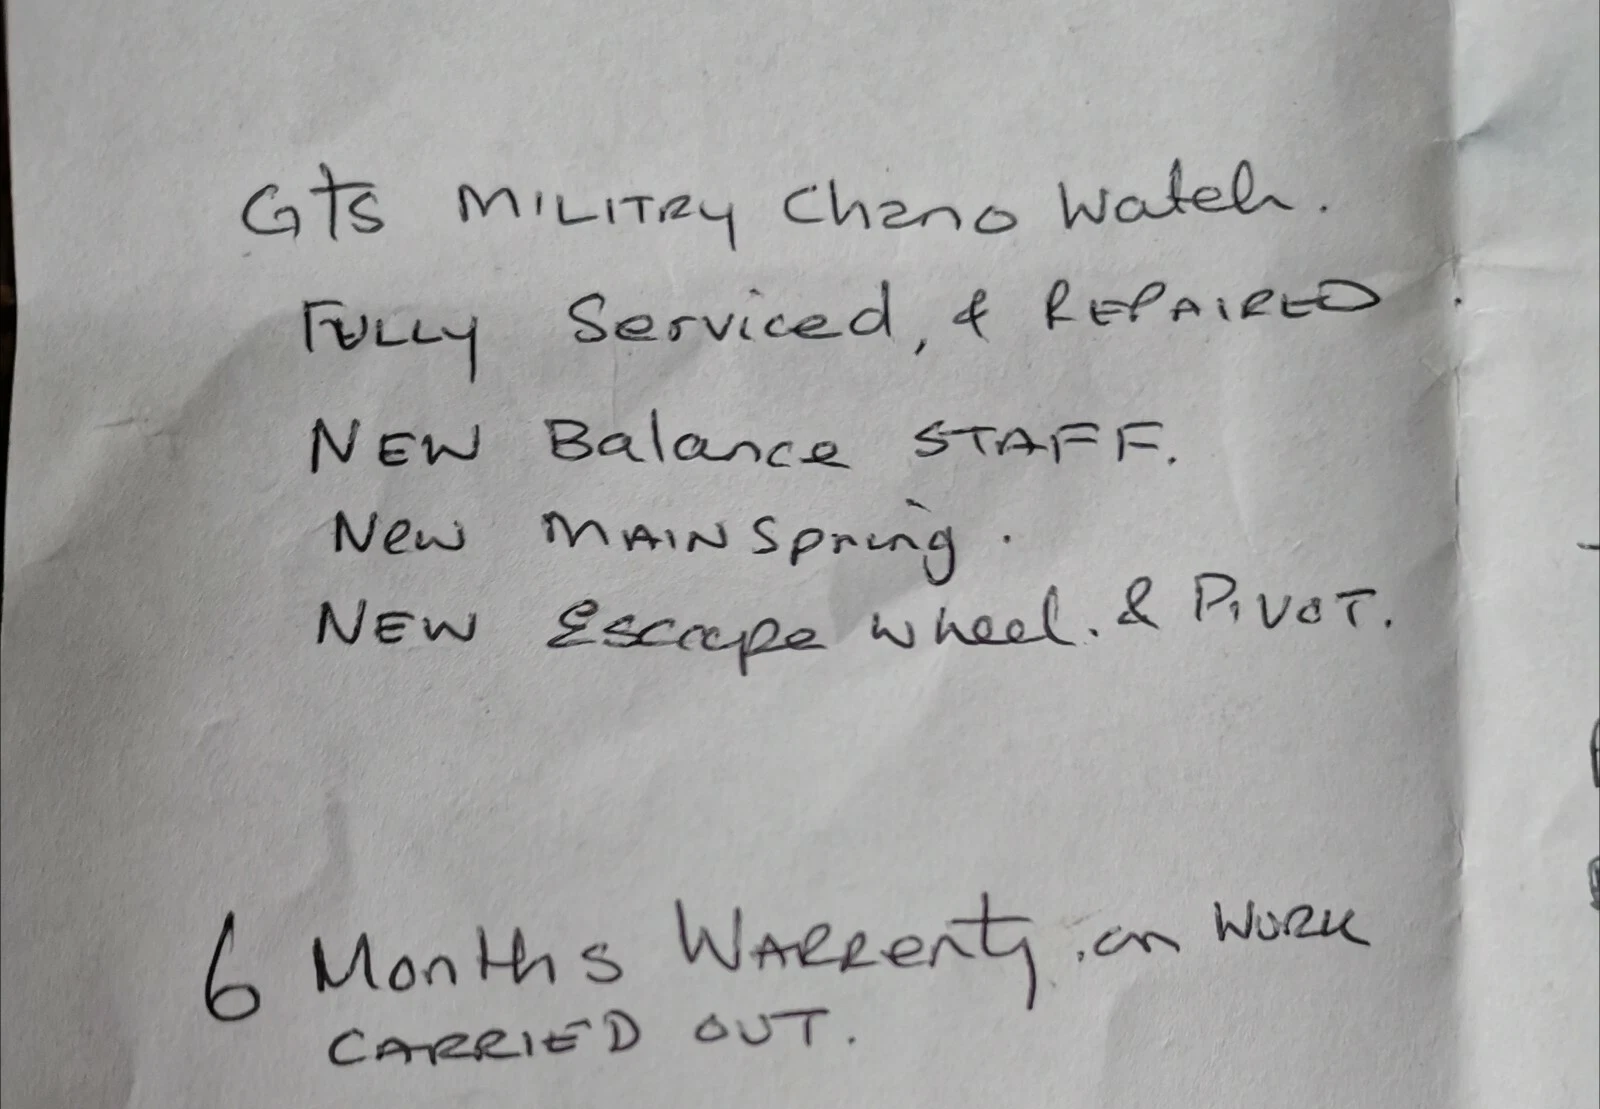 Gts MILITRY Chrno Watch.
FULLY Serviced, & REPAIRED.
NEW Balance STAFF.
New MAINSpring.
NEW Escape wheel. & PIVOT.
6 Months WARRenty. on WORK
CARRIED OUT.